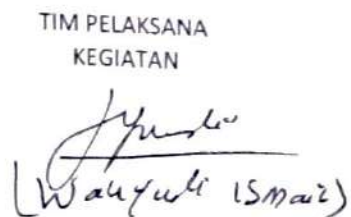 TIM PELAKSANA
KEGIATAN
(Wahyudi ISmail)